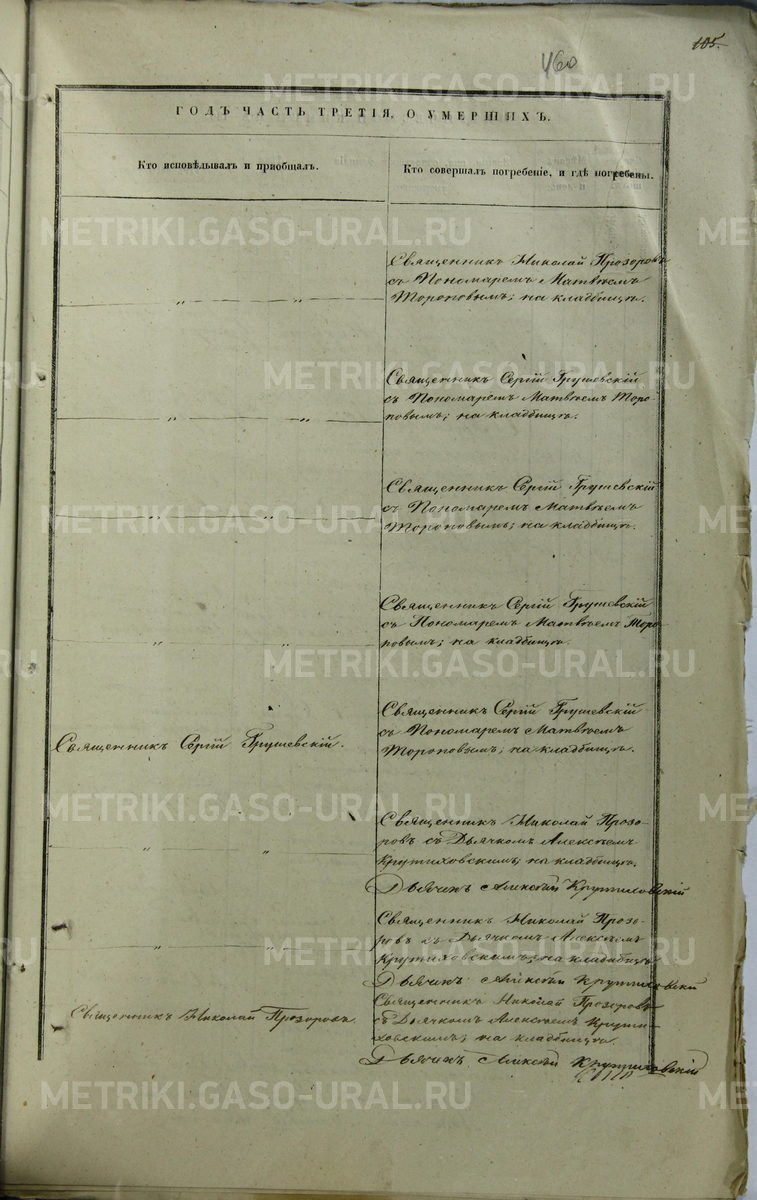 105.
460
ГОДЪ ЧАСТЬ ТРЕТІЯ, О УМЕРШИХЪ.
Кто исповѣдывалъ и пріобщалъ.
Кто совершалъ погребеніе, и гдѣ погребены.
Священникъ Николай Прозоровъ
съ Пономаремъ Матвѣемъ
Тороповымъ; на кладбищѣ.
„ „
Священникъ Сергій Грушевскій
съ Пономаремъ Матвѣемъ Торо-
повымъ; на кладбищѣ.
„ „
Священникъ Сергій Грушевскій
съ Пономаремъ Матвѣемъ
Тороповымъ; на кладбищѣ.
„ „
Священникъ Сергій Грушевскій
съ Пономаремъ Матвѣемъ Торо-
повымъ; на кладбищѣ.
„ „
Священникъ Сергій Грушевскій.
Священникъ Сергій Грушевскій
съ Пономаремъ Матвѣемъ
Тороповымъ; на кладбищѣ.
Священникъ Николай Прозо-
ровъ съ Дьячкомъ Алексѣемъ
Крутиховскимъ; на кладбищѣ.
„ „
Дьячекъ Алексѣй Крутиховскій
Священникъ Николай Прозо-
ровъ съ Дьячкомъ Алексѣемъ
Крутиховскимъ; на кладбищѣ.
„ „
Дьячекъ Алексѣй Крутиховскій
Священникъ Николай Прозоровъ.
Священникъ Николай Прозоровъ
съ Дьячкомъ Алексѣемъ Крути-
ховскимъ; на кладбищѣ.
Дьячекъ Алексѣй Крутиховскій
METRIKI.GASO-URAL.RU